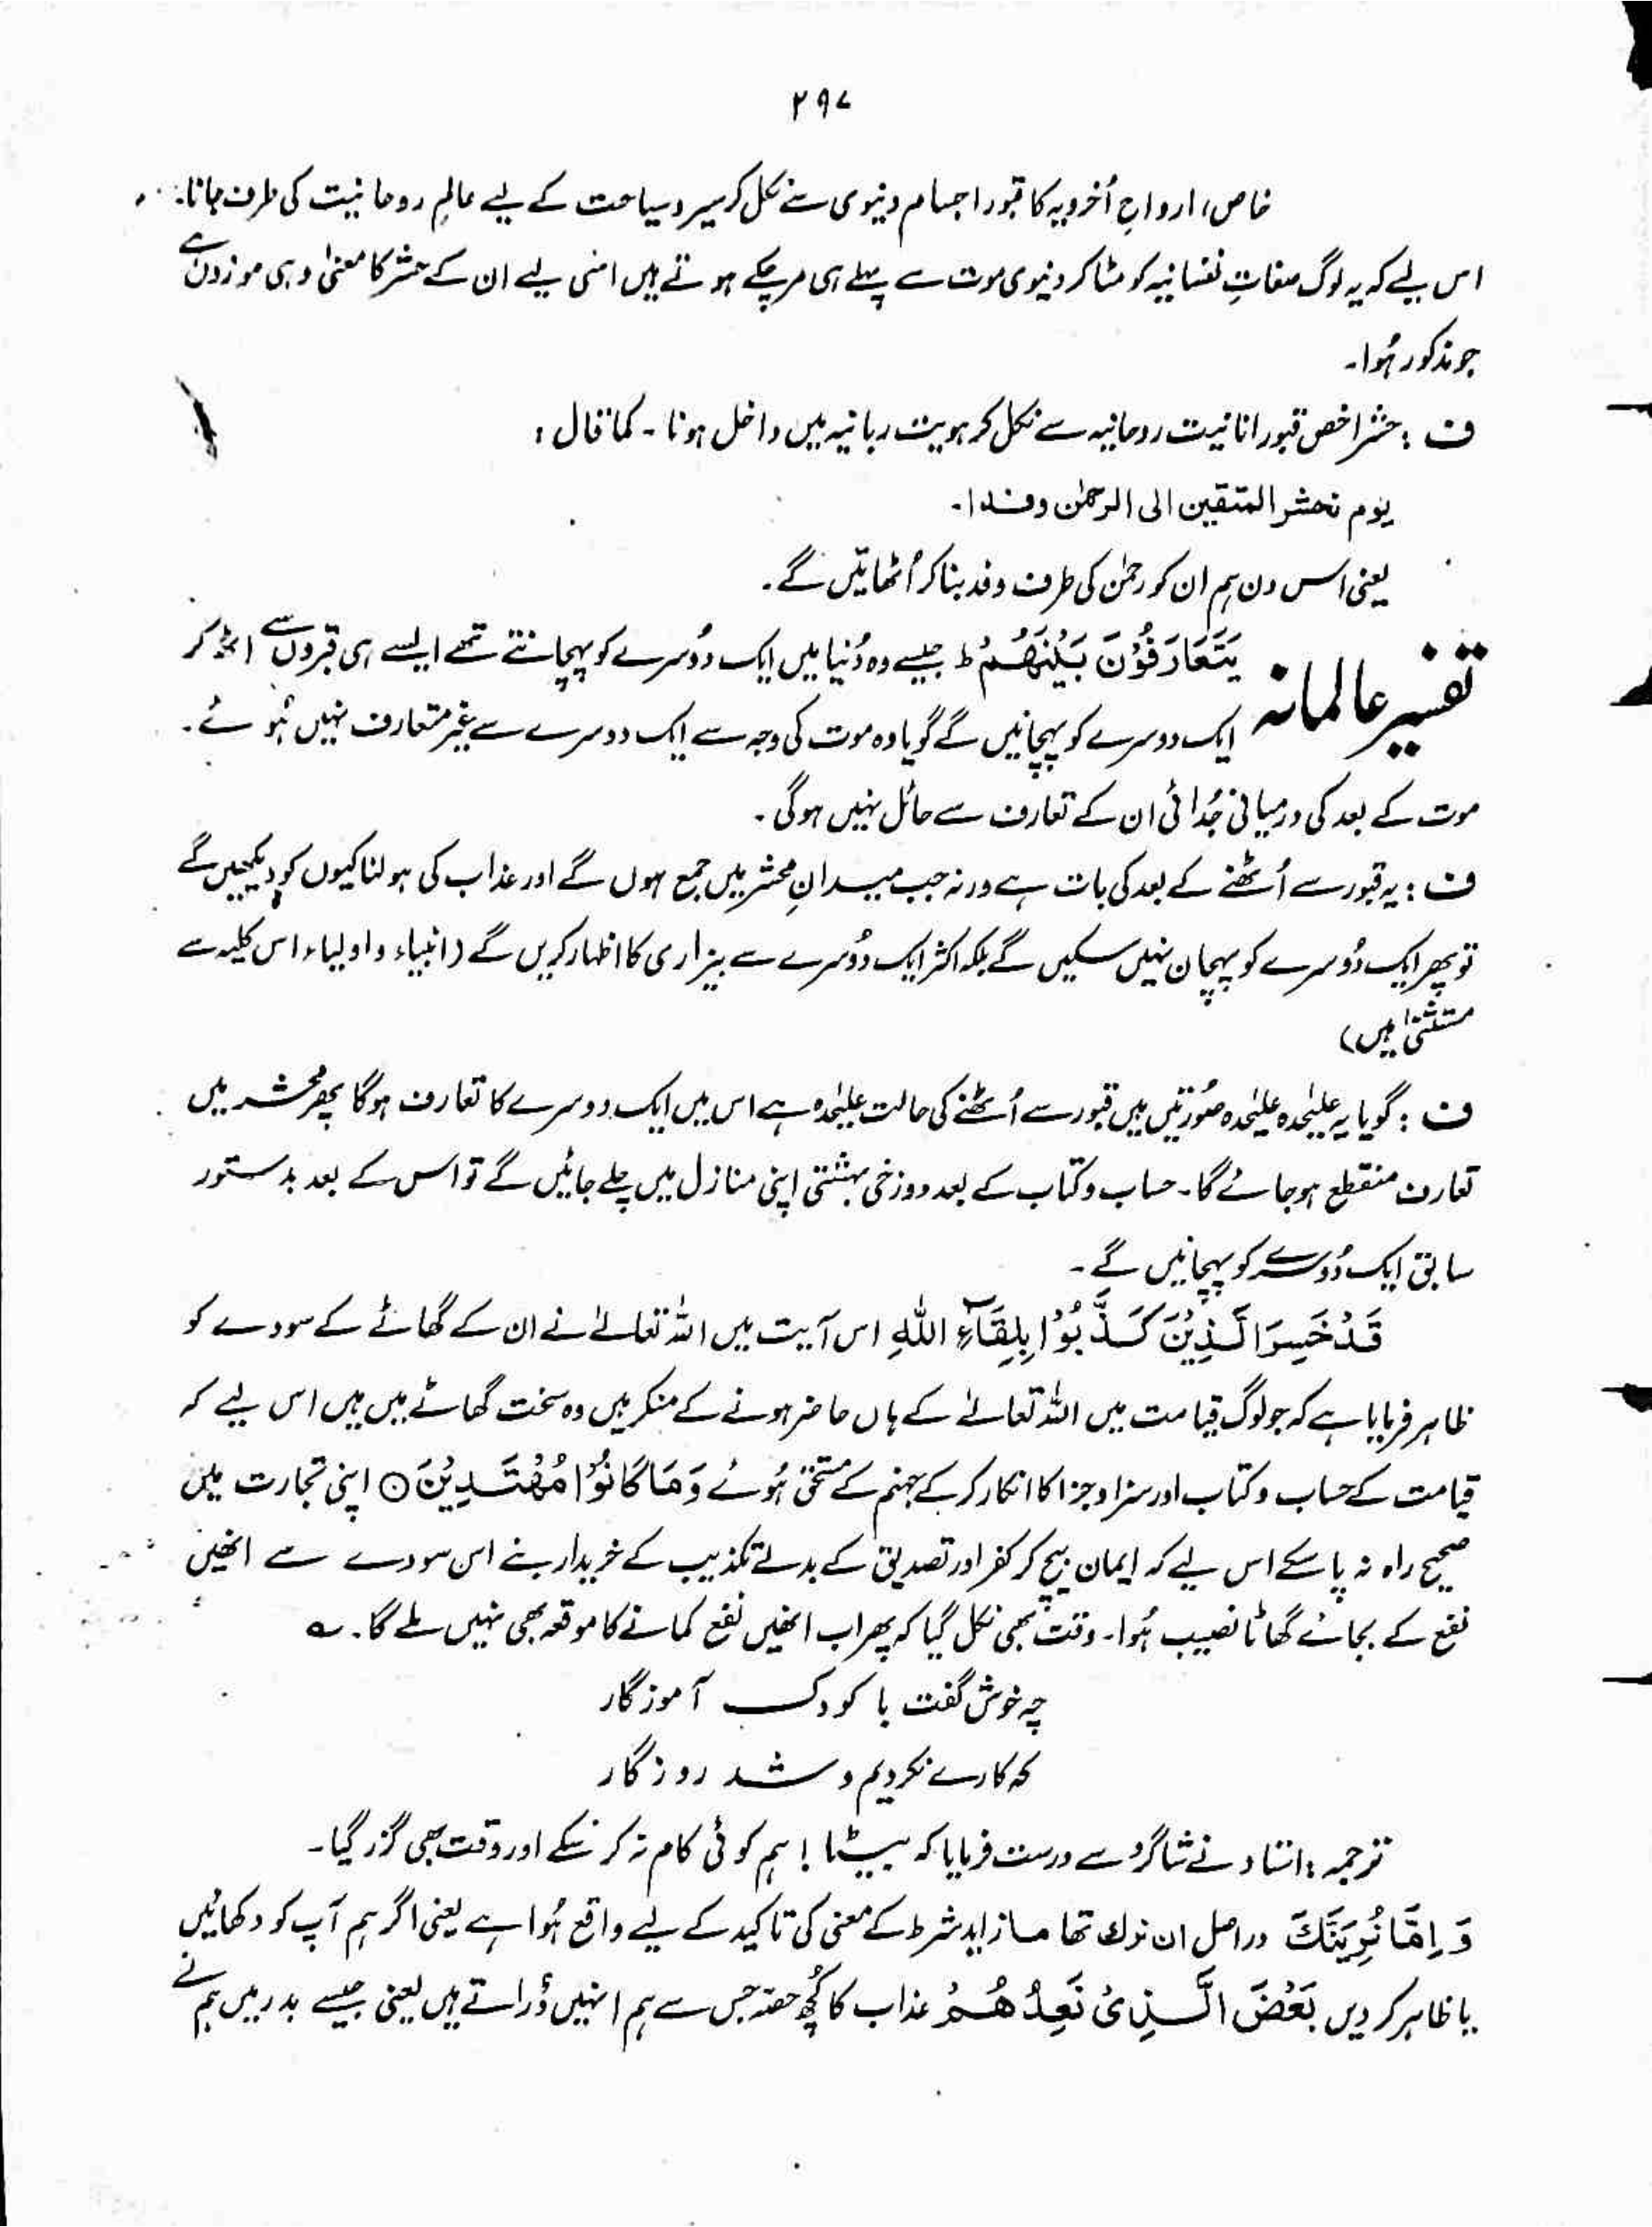 ۲۹۷
خاص، ارواحِ اُخرویہ کا قبور اجسام دنیوی سے نکل کر سیر و سیاحت کے لیے عالمِ روحانیت کی طرف جانا۔
اس لیے کہ یہ لوگ صفاتِ نفسانیہ کو مٹا کر دنیوی موت سے پہلے ہی مر چکے ہوتے ہیں اسی لیے ان کے حشر کا معنیٰ وہی موزوں ہے
جو مذکور ہُوا۔
ف : حشر اخص قبور انانیت روحانیہ سے نکل کر ہویت ربانیہ میں داخل ہونا۔ کما قال :
یوم نحشر المتقین الی الرحمٰن وفدا۔
یعنی اس دن ہم ان کو رحمٰن کی طرف وفد بنا کر اُٹھائیں گے۔
تفسیر عالمانہ یَتَعَارَفُوْنَ بَیْنَھُمْ ط جیسے وہ دُنیا میں ایک دُوسرے کو پہچانتے تھے ایسے ہی قبروں سے اٹھ کر
ایک دوسرے کو پہچانیں گے گویا وہ موت کی وجہ سے ایک دوسرے سے غیر متعارف نہیں ہُوئے۔
موت کے بعد کی درمیانی جُدائی ان کے تعارف سے حائل نہیں ہوگی۔
ف : یہ قبور سے اُٹھنے کے بعد کی بات ہے ورنہ جب میدانِ محشر میں جمع ہوں گے اور عذاب کی ہولناکیوں کو دیکھیں گے
تو پھر ایک دُوسرے کو پہچان نہیں سکیں گے بلکہ اکثر ایک دُوسرے سے بیزاری کا اظہار کریں گے (انبیاء و اولیاء اس کلیہ سے
مستثنیٰ ہیں)
ف : گویا یہ علیٰحدہ علیٰحدہ صُورتیں ہیں قبور سے اُٹھنے کی حالت علیٰحدہ ہے اس میں ایک دوسرے کا تعارف ہوگا پھر محشر میں
تعارف منقطع ہو جائے گا۔ حساب و کتاب کے بعد دوزخی بہشتی اپنی منازل میں چلے جائیں گے تو اس کے بعد بدستور
سابق ایک دُوسرے کو پہچانیں گے۔
قَدْ خَسِرَ الَّذِیْنَ کَذَّبُوْا بِلِقَآءِ اللّٰہِ اس آیت میں اللہ تعالیٰ نے ان کے گھاٹے کے سودے کو
ظاہر فرمایا ہے کہ جو لوگ قیامت میں اللہ تعالیٰ کے ہاں حاضر ہونے کے منکر ہیں وہ سخت گھاٹے میں ہیں اس لیے کہ
قیامت کے حساب و کتاب اور سزا و جزا کا انکار کر کے جہنم کے مستحق ہُوئے وَمَا کَانُوْا مُھْتَدِیْنَ ○ اپنی تجارت میں
صحیح راہ نہ پا سکے اس لیے کہ ایمان بیچ کر کفر اور تصدیق کے بدلے تکذیب کے خریدار بنے اس سودے سے انھیں
نفع کے بجائے گھاٹا نصیب ہُوا۔ وقت بھی نکل گیا کہ پھر اب انھیں نفع کمانے کا موقعہ بھی نہیں ملے گا۔ ؎
چہ خوش گفت با کودک آموزگار
کہ کارے نکردیم و شد روزگار
ترجمہ : استاد نے شاگرد سے درست فرمایا کہ بیٹا! ہم کوئی کام نہ کر سکے اور وقت بھی گزر گیا۔
وَ اِمَّا نُرِیَنَّکَ دراصل ان نرک تھا ما زاید شرط کے معنی کی تاکید کے لیے واقع ہُوا ہے یعنی اگر ہم آپ کو دکھائیں
یا ظاہر کر دیں بَعْضَ الَّذِیْ نَعِدُھُمْ عذاب کا کُچھ حصّہ جس سے ہم انہیں ڈراتے ہیں یعنی جیسے بدر میں ہم نے